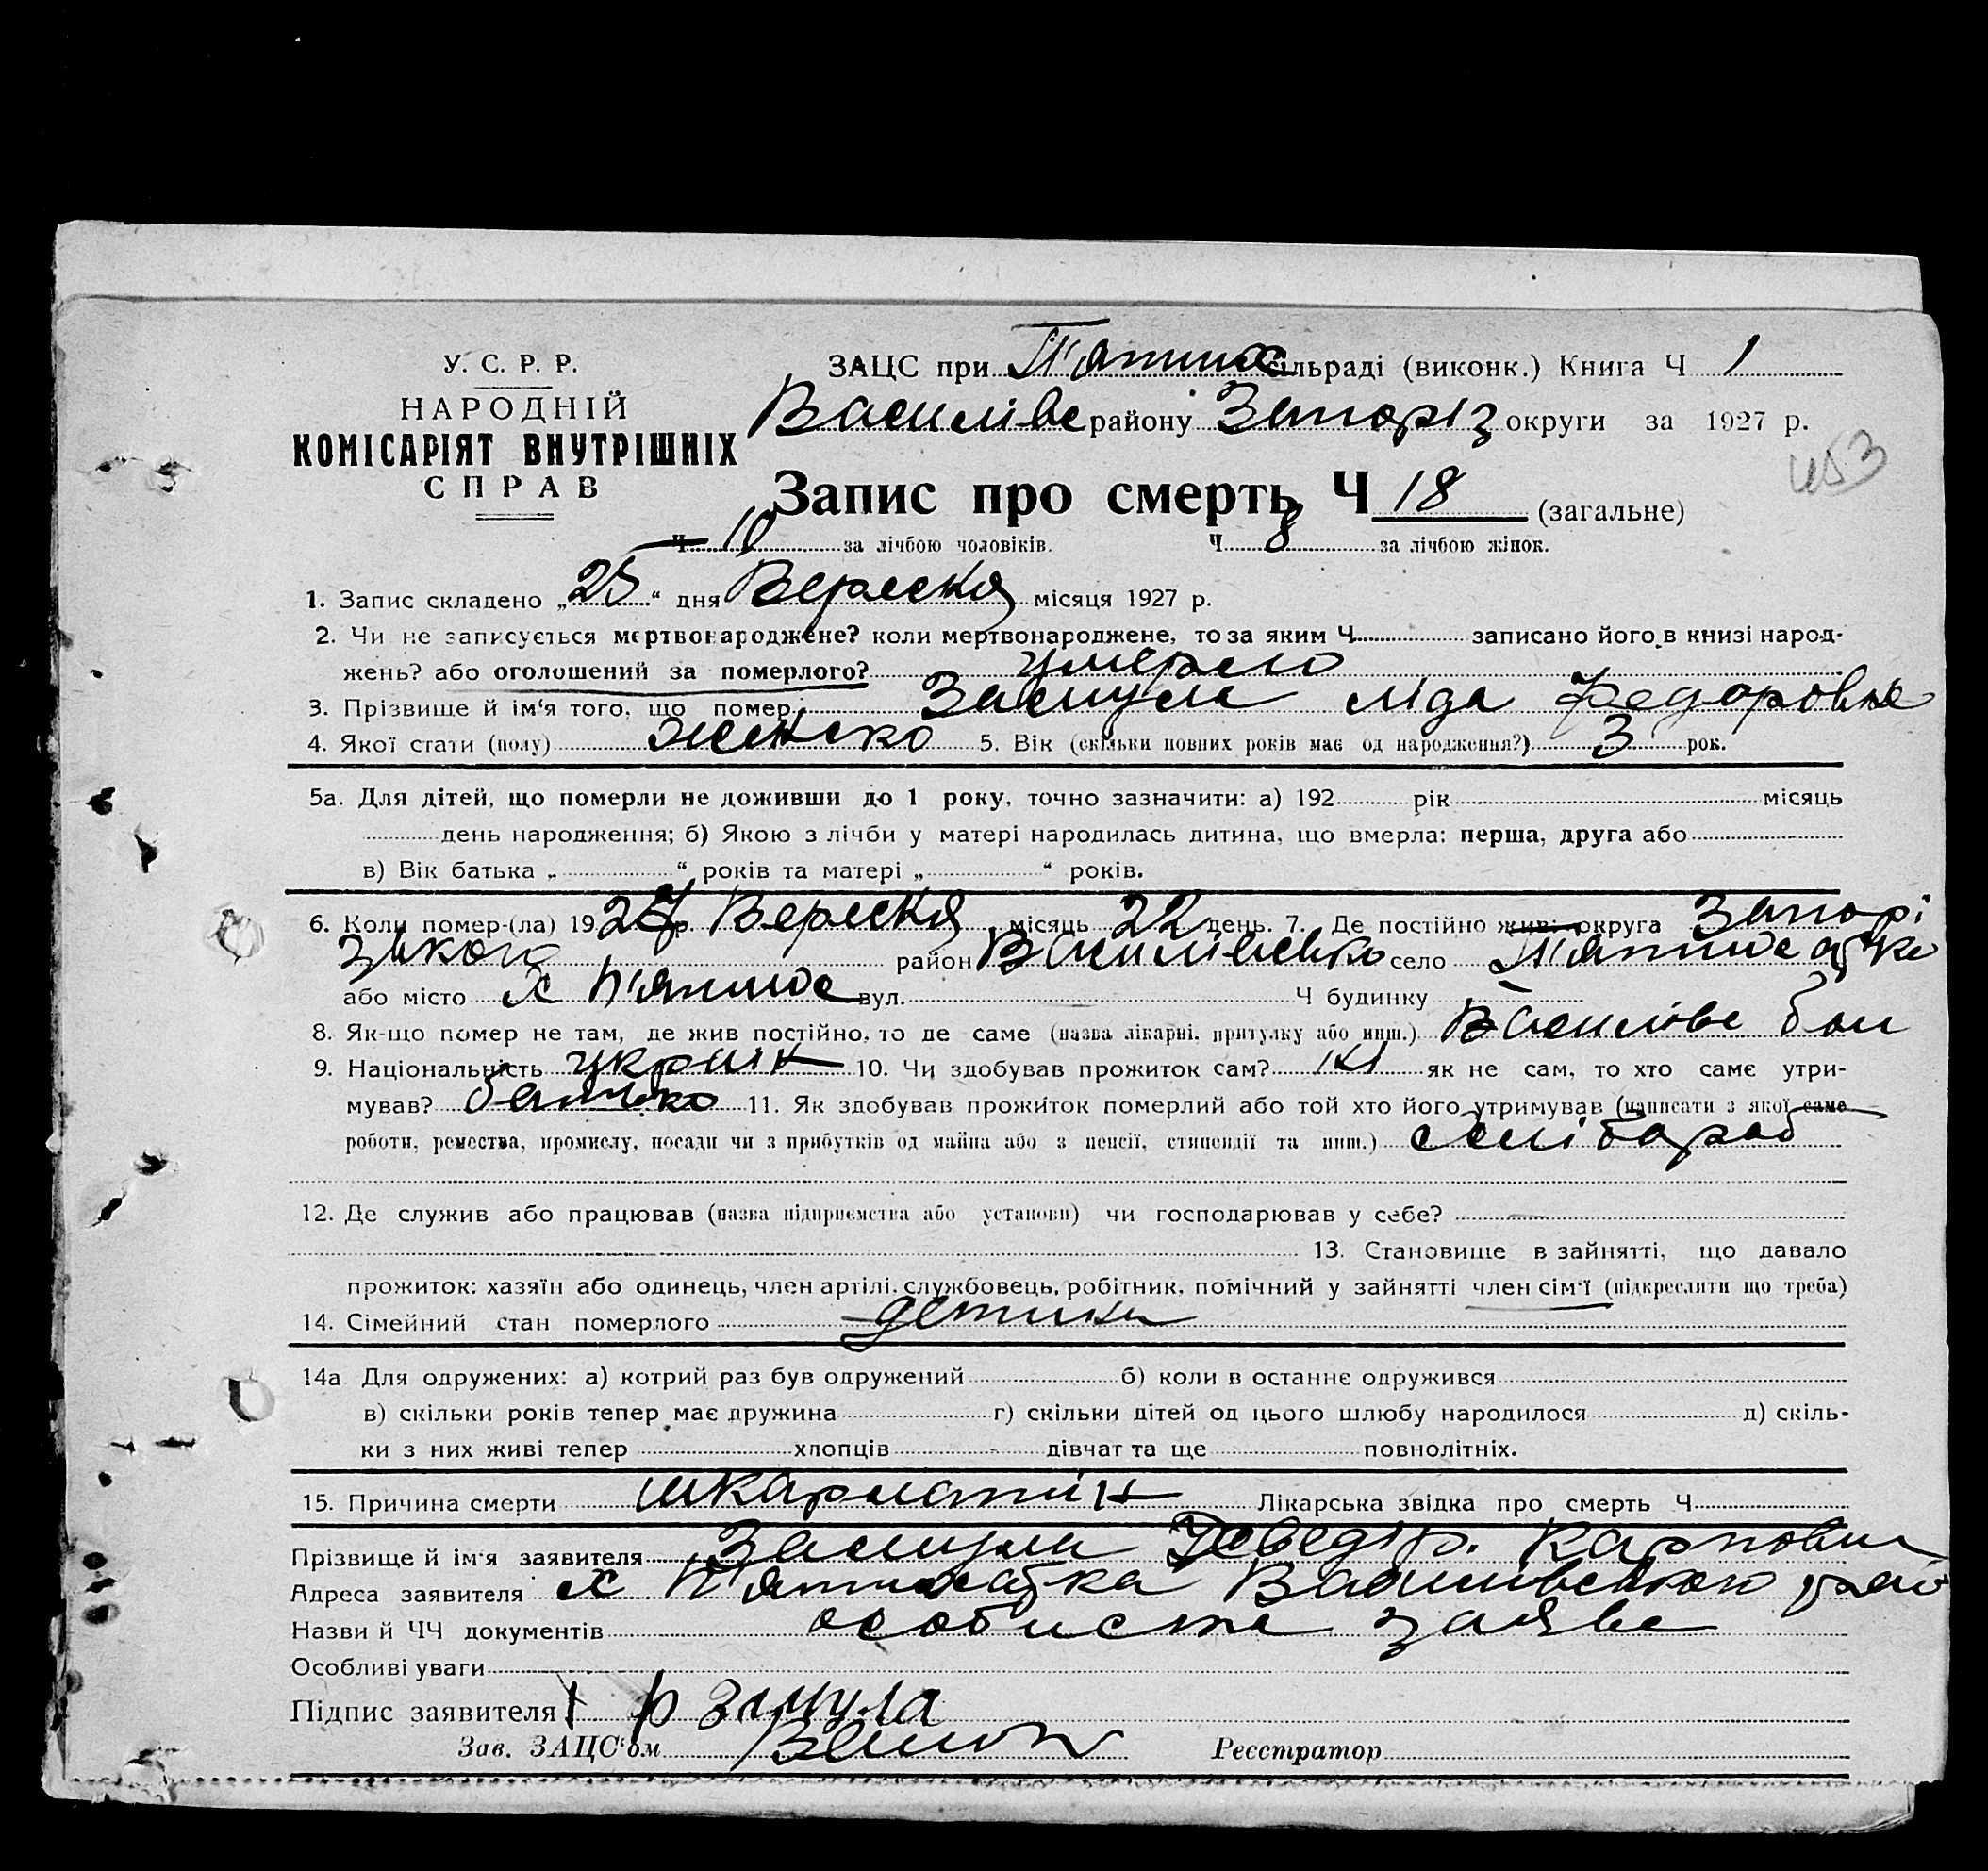 У. С. Р. Р.
НАРОДНІЙ
КОМІСАРІЯТ ВНУТРІШНІХ
СПРАВ
ЗАЦС при П'ятих сільраді (виконк.) Книга Ч 1
Василівс району Запоріз округи за 1927 р.
453
Запис про смерть Ч 18 (загальне)
Ч 10 за лічбою чоловіків. Ч 8 за лічбою жінок.
1. Запис складено „25“ дня Вересня місяця 1927 р.
2. Чи не записується мертвонароджене? коли мертвонароджене, то за яким Ч записано його в книзі народ-
жень? або оголошений за померлого? умерло
3. Прізвище й ім'я того, що помер Ліда Федоровна
4. Якої стати (полу) женско 5. Вік (скільки повних років має од народження?) 3 рок.
5а. Для дітей, що померли не доживши до 1 року, точно зазначити: а) 192 рік місяць
день народження; б) Якою з лічби у матері народилась дитина, що вмерла: перша, друга або
в) Вік батька „ “ років та матері „ “ років.
6. Коли помер-(ла) 1927 р. Вересня місяць 22 день. 7. Де постійно жив: округа Запорі
зької район Василівсько село П'ятихатка
або місто х вул. Ч будинку
8. Як-що помер не там, де жив постійно, то де саме (назва лікарні, притулку або инш.) Василівс бол
9. Національність україн 10. Чи здобував прожиток сам? ні як не сам, то хто саме утри-
мував? батько 11. Як здобував прожиток померлий або той хто його утримував (написати з якої саме
роботи, ремества, промислу, посади чи з прибутків од майна або з пенсії, стипендії та инш.) сілі
12. Де служив або працював (назва підприємства або установи) чи господарював у себе?
13. Становище в зайнятті, що давало
прожиток: хазяїн або одинець, член артілі, службовець, робітник, помічний у зайнятті член сім'ї (підкреслити що треба)
14. Сімейний стан померлого детина
14а Для одружених: а) котрий раз був одружений б) коли в останнє одружився
в) скільки років тепер має дружина г) скільки дітей од цього шлюбу народилося д) скіль-
ки з них живі тепер хлопців дівчат та ще повнолітніх.
15. Причина смерти шкарлатін Лікарська звідка про смерть Ч
Прізвище й ім'я заявителя Карпович
Адреса заявителя х П'ятихатка Василівського рай
Назви й ЧЧ документів особиста заява
Особливі уваги
Підпис заявителя
Зав. ЗАЦС'ом Реєстратор